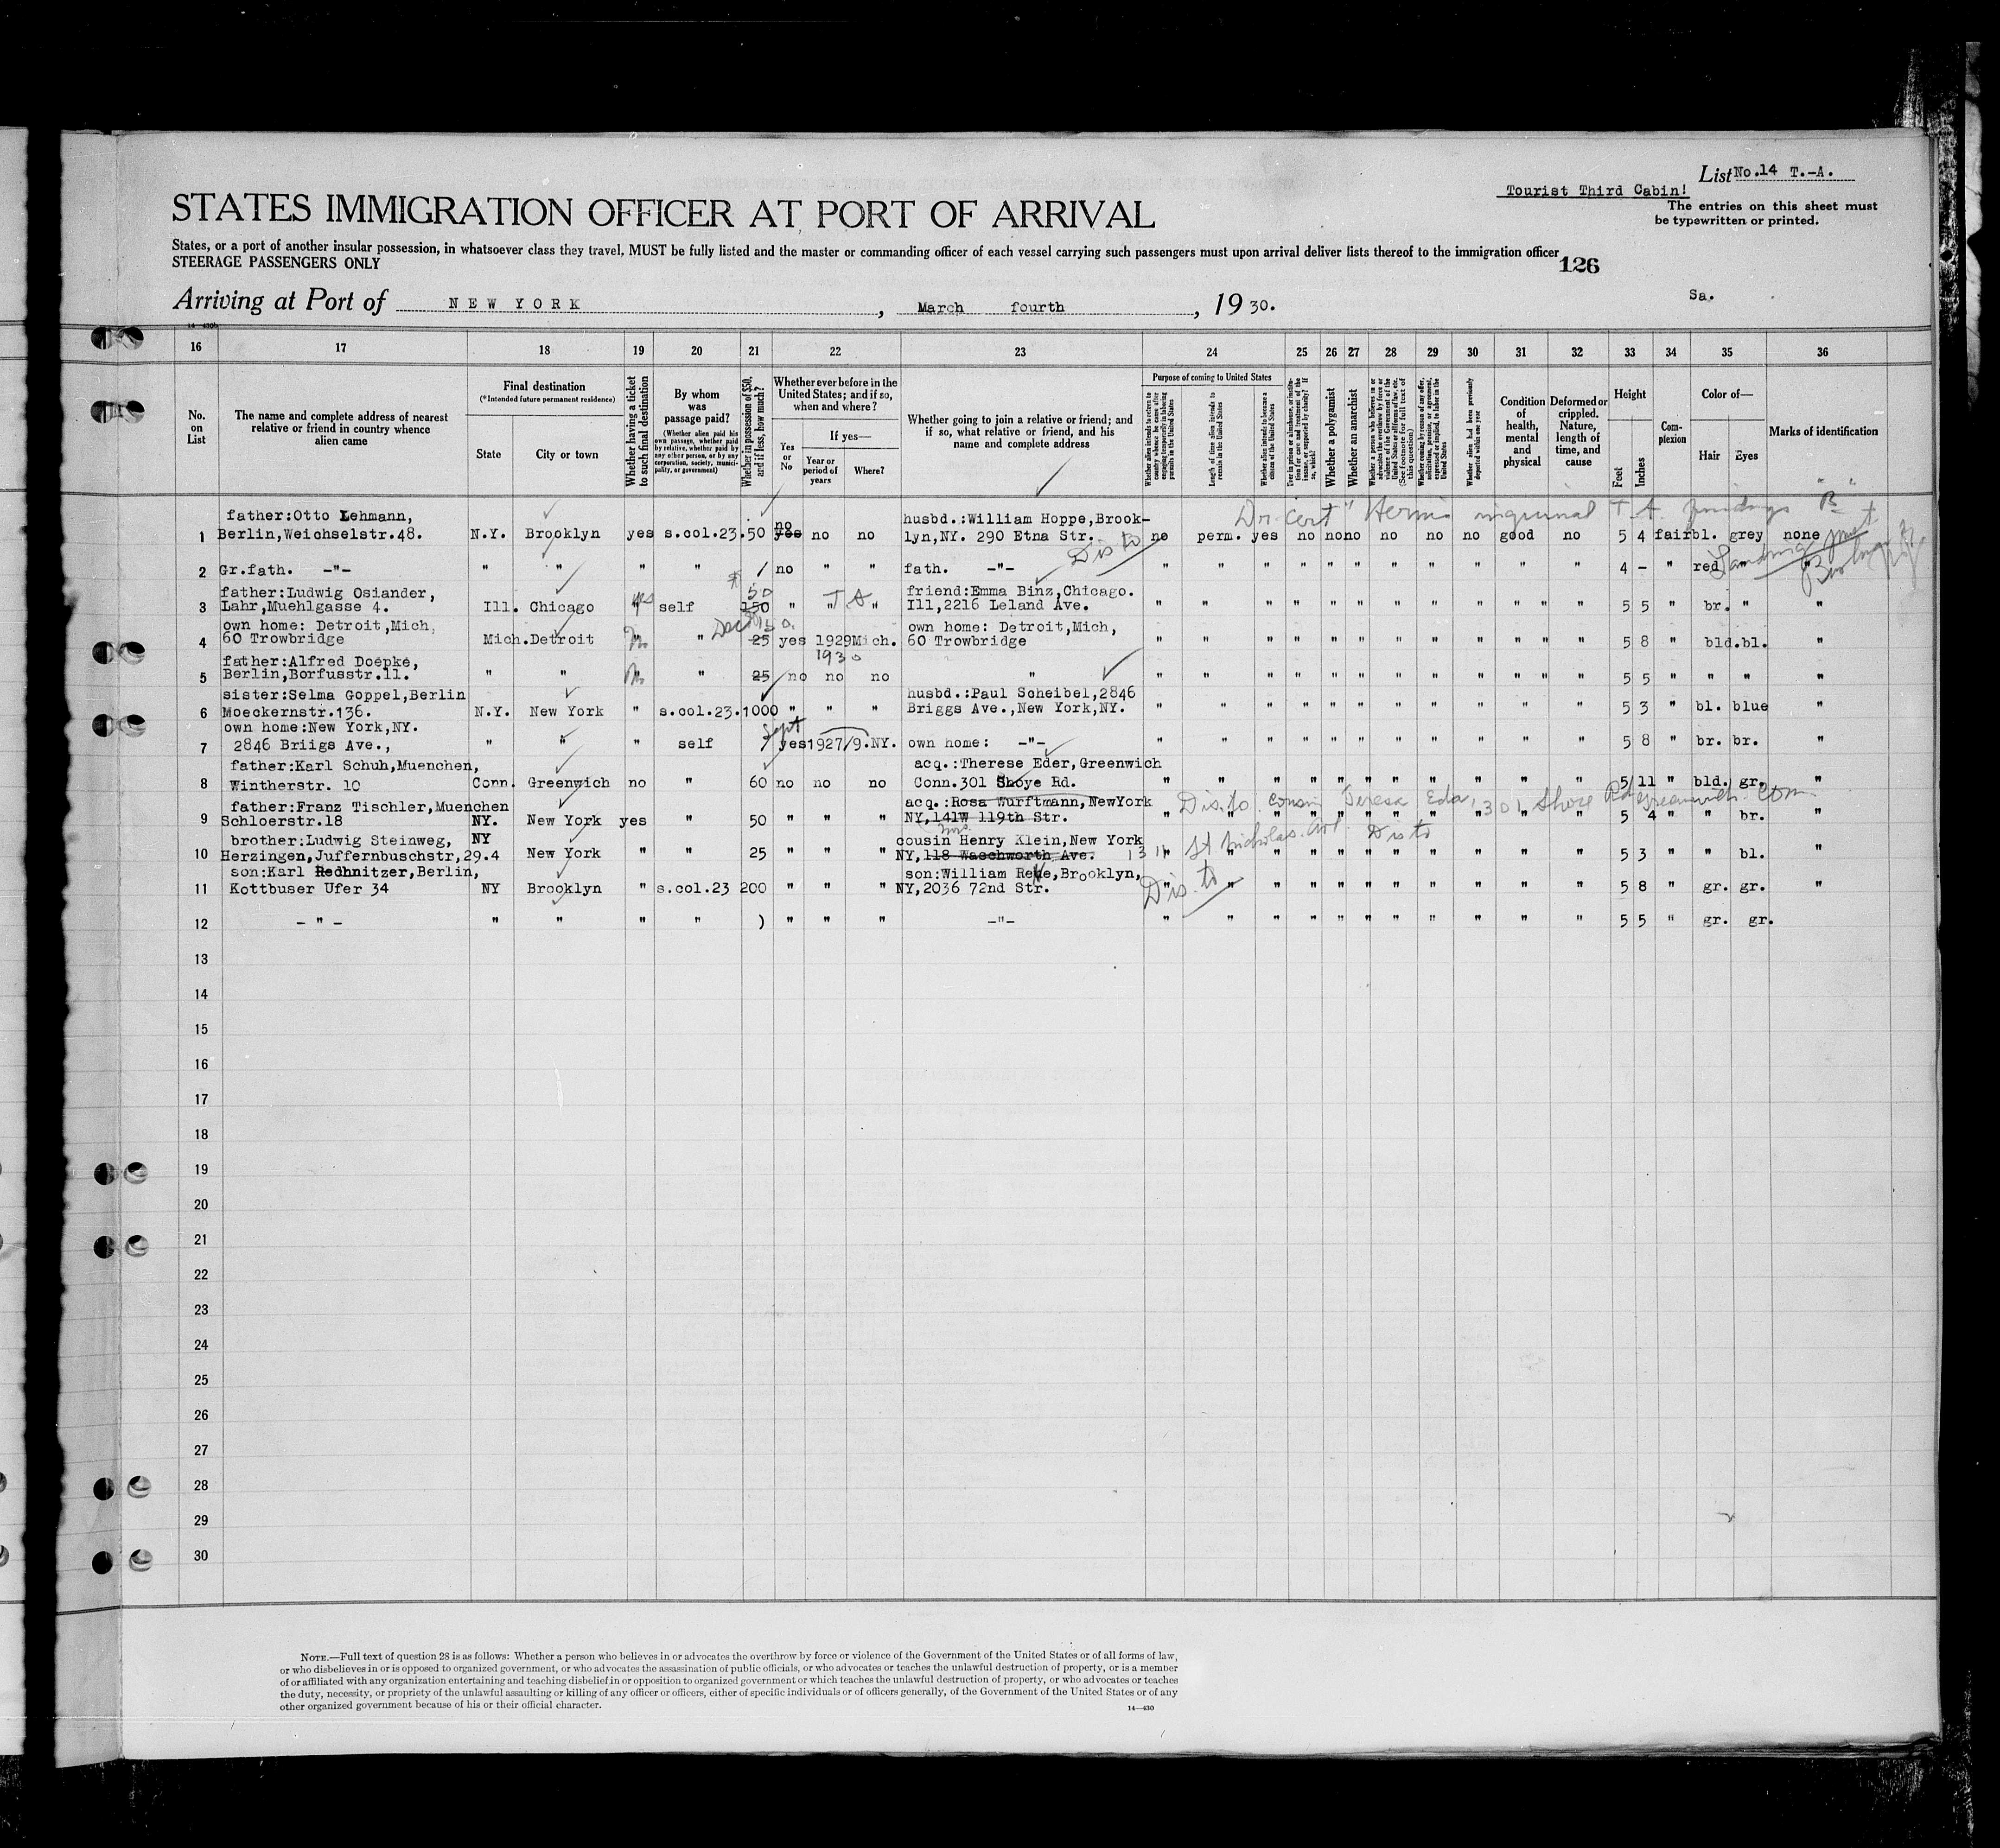 List No.14 T.-A.
Tourist Third Cabin!
The entries on this sheet must
be typewritten or printed.
STATES IMMIGRATION OFFICER AT PORT OF ARRIVAL
States, or a port of another insular possession, in whatsoever class they travel, MUST be fully listed and the master or commanding officer of each vessel carrying such passengers must upon arrival deliver lists thereof to the immigration officer
STEERAGE PASSENGERS ONLY
126
Arriving at Port of NEW YORK, March fourth, 1930.
Sa.
16 17 18 19 20 21 22 23 24 25 26 27 28 29 30 31 32 33 34 35 36
No. on List
The name and complete address of nearest relative or friend in country whence alien came
Final destination
(*Intended future permanent residence)
State
City or town
Whether having a ticket to such final destination
By whom was passage paid?
(Whether alien paid his own passage, whether paid by relative, whether paid by any other person, or by any corporation, society, municipality, or government)
Whether in possession of $50, and if less, how much?
Whether ever before in the United States; and if so, when and where?
Yes or No
If yes—
Year or period of years
Where?
Whether going to join a relative or friend; and if so, what relative or friend, and his name and complete address
Purpose of coming to United States
Length of time alien intends to remain in the United States
Whether alien intends to become a citizen of the United States
Whether a polygamist
Whether an anarchist
Condition of health, mental and physical
Deformed or crippled. Nature, length of time, and cause
Height
Feet
Inches
Complexion
Color of—
Hair
Eyes
Marks of identification
Dr. Cert "Hernia inguinal T.A. findings "B"
father:Otto Lehmann, no husbd.:William Hoppe,Brook-
1 Berlin,Weichselstr.48. N.Y. Brooklyn yes s.col.23. 50 yes no no lyn,NY. 290 Etna Str. no perm. yes no no no no no no good no 5 4 fair bl. grey none
Dis to
2 Gr.fath. -"- " " " " no " " fath. -"- " " " " " " " " " " " 4 - " red " "
father:Ludwig Osiander, 50 friend:Emma Binz,Chicago.
3 Lahr,Muehlgasse 4. Ill. Chicago " self 150 " " " Ill,2216 Leland Ave. " " " " " " " " " " " 5 5 " br. " "
own home: Detroit,Mich, own home: Detroit,Mich,
4 60 Trowbridge Mich. Detroit " " 25 yes 1929 Mich. 60 Trowbridge " " " " " " " " " " " 5 8 " bld. bl. "
1930
father:Alfred Doepke,
5 Berlin,Borfusstr.11. " " " " 25 no no no " " " " " " " " " " " " 5 5 " " " "
sister:Selma Goppel,Berlin husbd.:Paul Scheibel,2846
6 Moeckernstr.136. N.Y. New York " s.col.23. 1000 " " " Briggs Ave.,New York,NY. " " " " " " " " " " " 5 3 " bl. blue "
own home:New York,NY. Sept
7 2846 Briigs Ave., " " " self yes 1927/9. NY. own home: -"- " " " " " " " " " " " 5 8 " br. br. "
father:Karl Schuh,Muenchen, acq.:Therese Eder,Greenwich
8 Wintherstr. 10 Conn. Greenwich no " 60 no no no Conn.301 Shoye Rd. " " " " " " " " " " " 5 11 " bld. gr. "
father:Franz Tischler,Muenchen acq.:Rosa Wurftmann,NewYork Dis. to cousin Teresa Eda, 301 Shore Rd Greenwich Conn
9 Schloerstr.18 NY. New York yes " 50 " " " NY,141W 119th Str. " " " " " " " " " " " 5 4 " " br. "
brother:Ludwig Steinweg, NY cousin Henry Klein,New York St Nicholas. Dis to
10 Herzingen,Juffernbuschstr,29.4 New York " " 25 " " " NY,118 Waechworth Ave. " " " " " " " " " " " 5 3 " " bl. "
son:Karl Redhnitzer,Berlin, son:William Rene,Brooklyn,
11 Kottbuser Ufer 34 NY Brooklyn " s.col.23 200 " " " NY,2036 72nd Str. " " " " " " " " " " " 5 8 " gr. gr. "
Dis. to
12 - " - " " " " ) " " " -"- " " " " " " " " " " " 5 5 " gr. gr.
13
14
15
16
17
18
19
20
21
22
23
24
25
26
27
28
29
30
NOTE.—Full text of question 28 is as follows: Whether a person who believes in or advocates the overthrow by force or violence of the Government of the United States or of all forms of law,
or who disbelieves in or is opposed to organized government, or who advocates the assassination of public officials, or who advocates or teaches the unlawful destruction of property, or is a member
of or affiliated with any organization entertaining and teaching disbelief in or opposition to organized government or which teaches the unlawful destruction of property, or who advocates or teaches
the duty, necessity, or propriety of the unlawful assaulting or killing of any officer or officers, either of specific individuals or of officers generally, of the Government of the United States or of any
other organized government because of his or their official character.
14—430